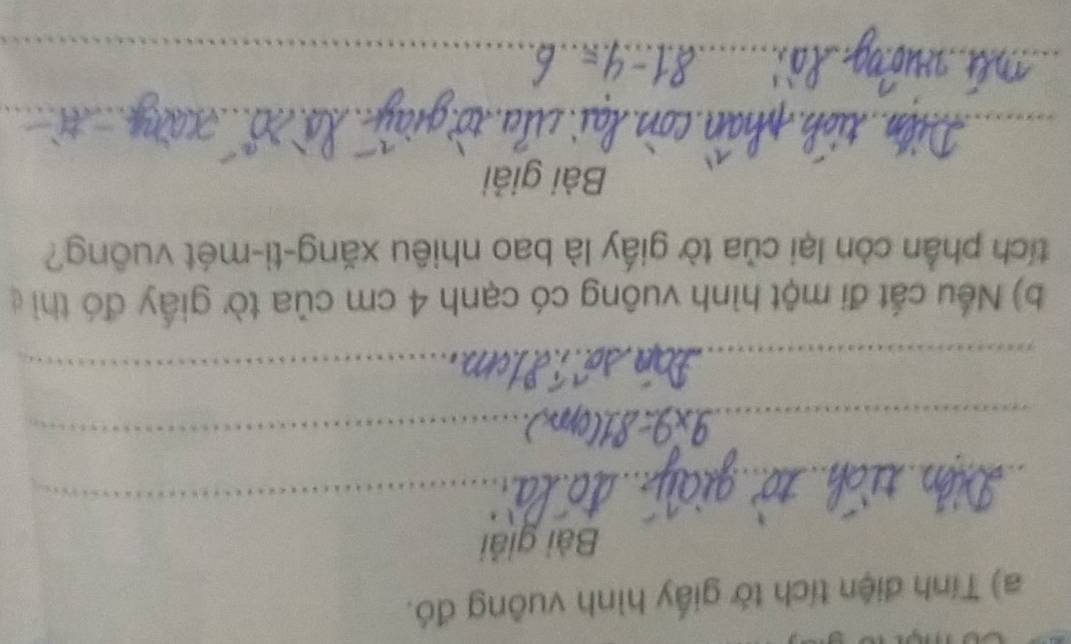 a) Tính diện tích tờ giấy hình vuông đó.
Bài giải
Diện tích tờ giấy đó là:
9x9=81(cm)
Đáp số: 81cm.
b) Nếu cắt đi một hình vuông có cạnh 4 cm của tờ giấy đó thì
tích phần còn lại của tờ giấy là bao nhiêu xăng-ti-mét vuông?
Bài giải
Diện tích phần còn lại của tờ giấy là số xăng-ti-
mét vuông là: 81-4= 6